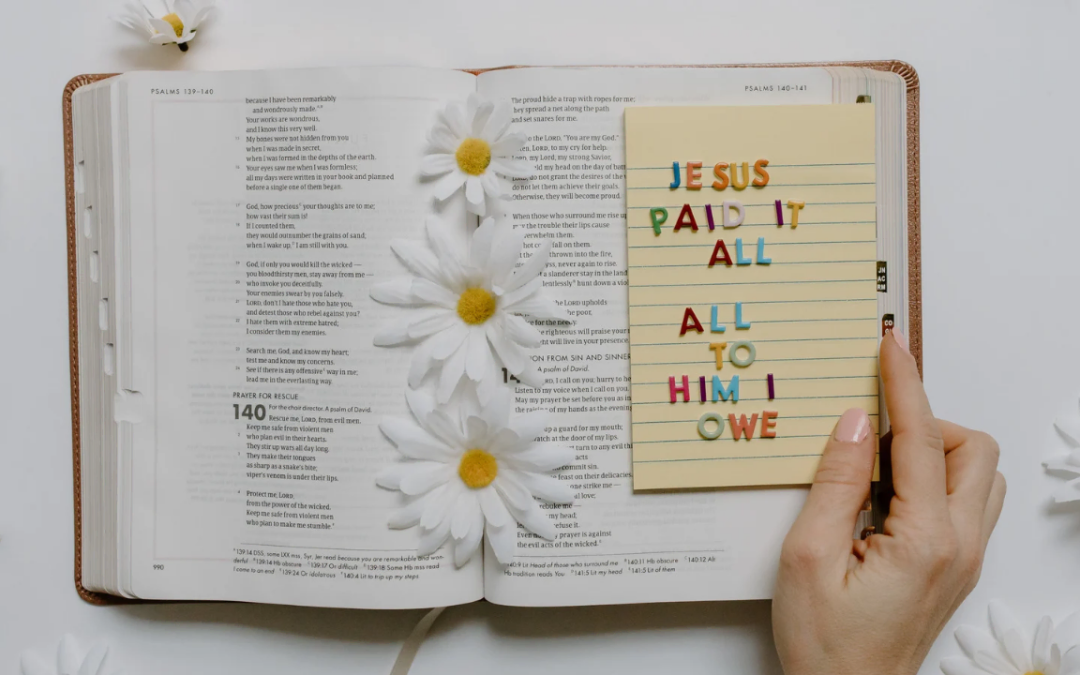 PSALMS 139–140
because I have been remarkably
and wondrously made.
Your works are wondrous,
and I know this very well.
My bones were not hidden from you
when I was made in secret,
when I was formed in the depths of the earth.
Your eyes saw me when I was formless;
all my days were written in your book and planned
before a single one of them began.
God, how precious your thoughts are to me;
how vast their sum is!
If I counted them,
they would outnumber the grains of sand;
when I wake up, I am still with you.
God, if only you would kill the wicked —
you bloodthirsty men, stay away from me —
who invoke you deceitfully.
Your enemies swear by you falsely.
LORD, don't I hate those who hate you,
and detest those who rebel against you?
I hate them with extreme hatred;
I consider them my enemies.
Search me, God, and know my heart;
test me and know my concerns.
See if there is any offensive way in me;
lead me in the everlasting way.
PRAYER FOR RESCUE
140 For the choir director. A psalm of David.
Rescue me, LORD, from evil men.
Keep me safe from violent men
who plan evil in their hearts.
They stir up wars all day long.
They make their tongues
as sharp as a snake's bite;
viper's venom is under their lips.
Protect me, LORD,
from the power of the wicked.
Keep me safe from violent men
who plan to make me stumble.
139:14 DSS, some LXX mss, Syr, Jer read because you are remarkable and won-
derful 139:14 Hb obscure 139:17 Or difficult 139:18 Some Hb mss read
I come to an end 139:24 Or idolatrous 140:4 Lit to trip up my steps
990
PSALMS 140–141
The proud hide a trap with ropes for me;
they spread a net along the path
and set snares for me.
the LORD, "You are my God."
LORD, to my cry for help.
my Lord, my strong Savior,
my head on the day of
do not grant the desires of the
do not let them achieve their goals.
Otherwise, they will become proud.
When those who surround me rise up
the trouble their lips cause
overwhelm them.
fall on them.
thrown into the fire,
never again to rise.
a slanderer stay in the land
hunt down a
the LORD upholds
the poor,
for the needy.
righteous will praise your
will live in your presence.
FROM SIN AND
A psalm of David.
I call on you; hurry to
Listen to my voice when I call on you.
May my prayer be set before you as
the of my hands as the evening
up a guard for my mouth;
watch at the door of my lips.
turn to any evil
acts
commit sin.
feast on their delicacies.
one strike me —
love;
rebuke me —
my head;
refuse it.
Even prayer is against
the evil acts of the wicked.
140:9 Lit Head of those who surround me 140:11 Hb obscure 140:12 Alt
Hb tradition reads You 141:5 Lit my head 141:5 Lit of them
JESUS
PAID IT
ALL
ALL
TO
HIM I
OWE
JN
AC
RM
CO